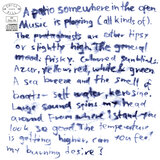 A patio somewhere in the open
Music is playing (all kinds of).
The protagonists are either tipsy
or slightly high. The general
mood: frisky. Coloured sunblinds.
Azur, yellow, red, white & green
A sea breeze and the smell of
boats - salt water, kerosine.
Large sound spins my head
around. From where I stand you
look so good. The temperature
is getting higher. Can you feel
my burning desire?